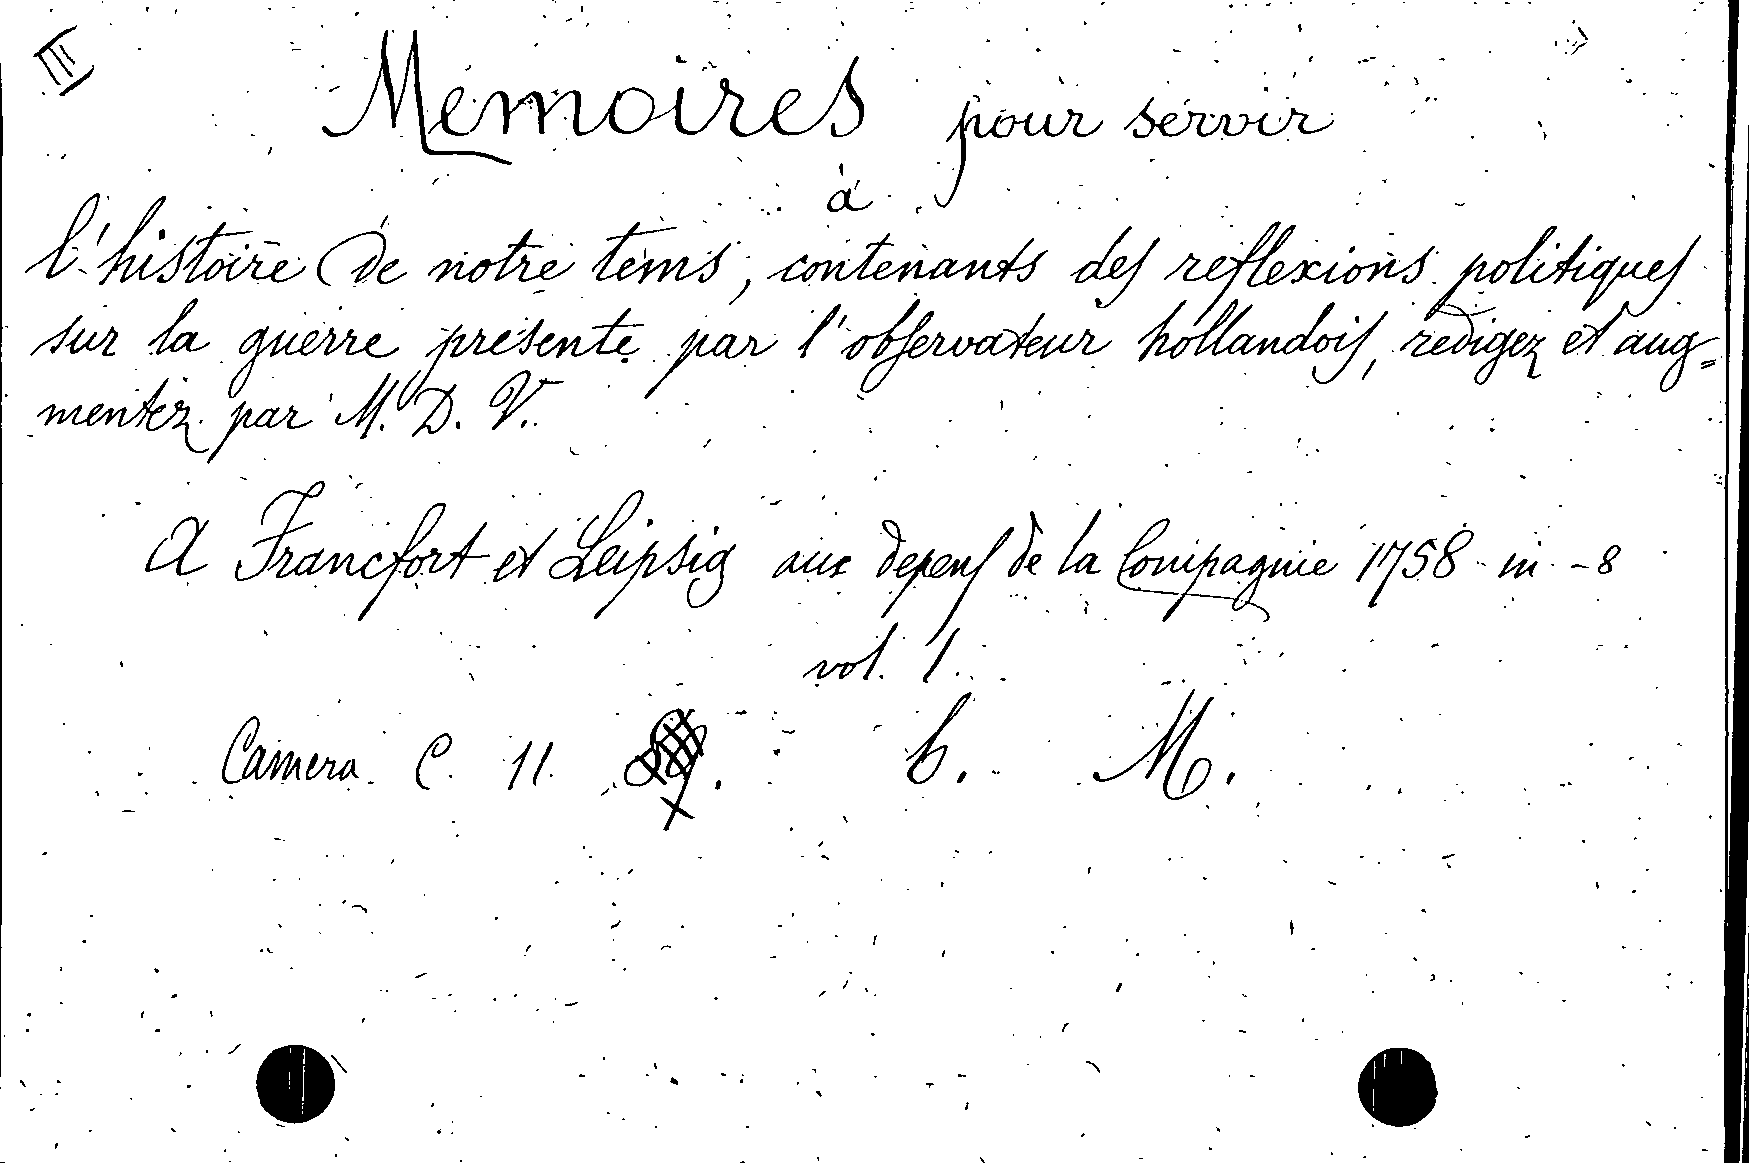 III
Memoires pour servir
à
l'histoire de notre tems, contenants des reflexions politiques
sur la guerre presente par l'observateur hollandois, redigez et aug=
mentez par M. D. V.
A Francfort et Leipsig aux depens de la Compagnie 1758 in -8
vol. 1.
Camera C. 11. b. M.